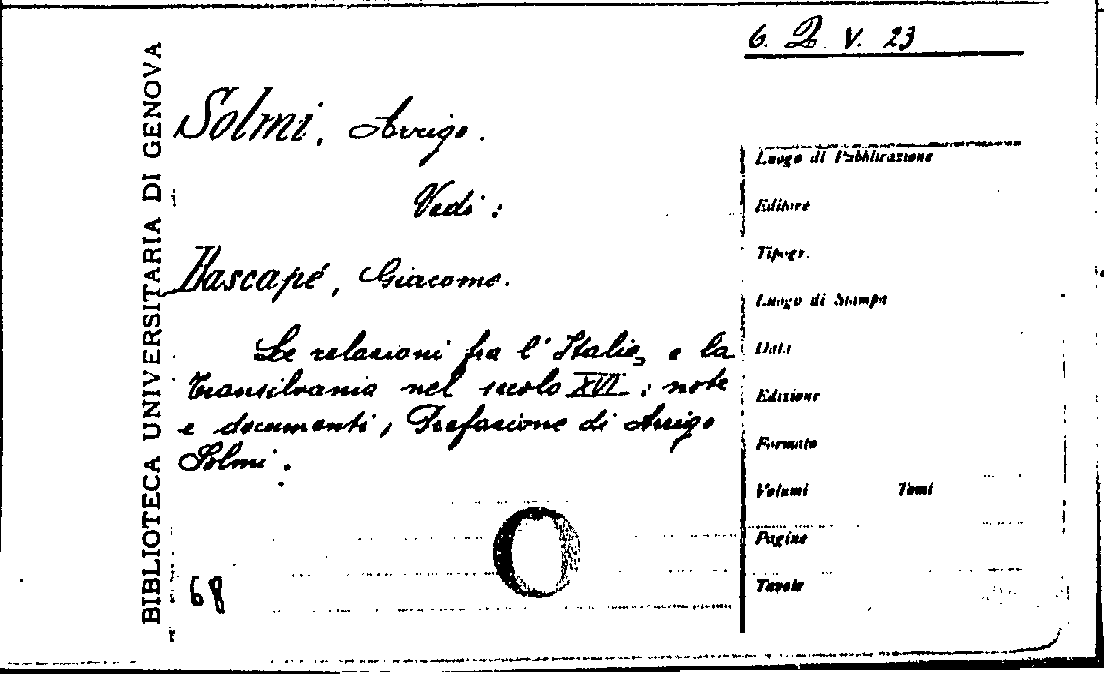 6. Q. V. 23
BIBLIOTECA UNIVERSITARIA DI GENOVA
Solmi, Arrigo.
Vedi:
Bascapé, Giacomo.
Le relazioni fra l'Italia e la
Transilvania nel secolo XVI: note
e documenti, Prefazione di Arrigo
Solmi.
68
Luogo di Pubblicazione
Editore
Tipogr.
Luogo di Stampa
Data
Edizione
Formato
Volumi Tomi
Pagine
Tavole